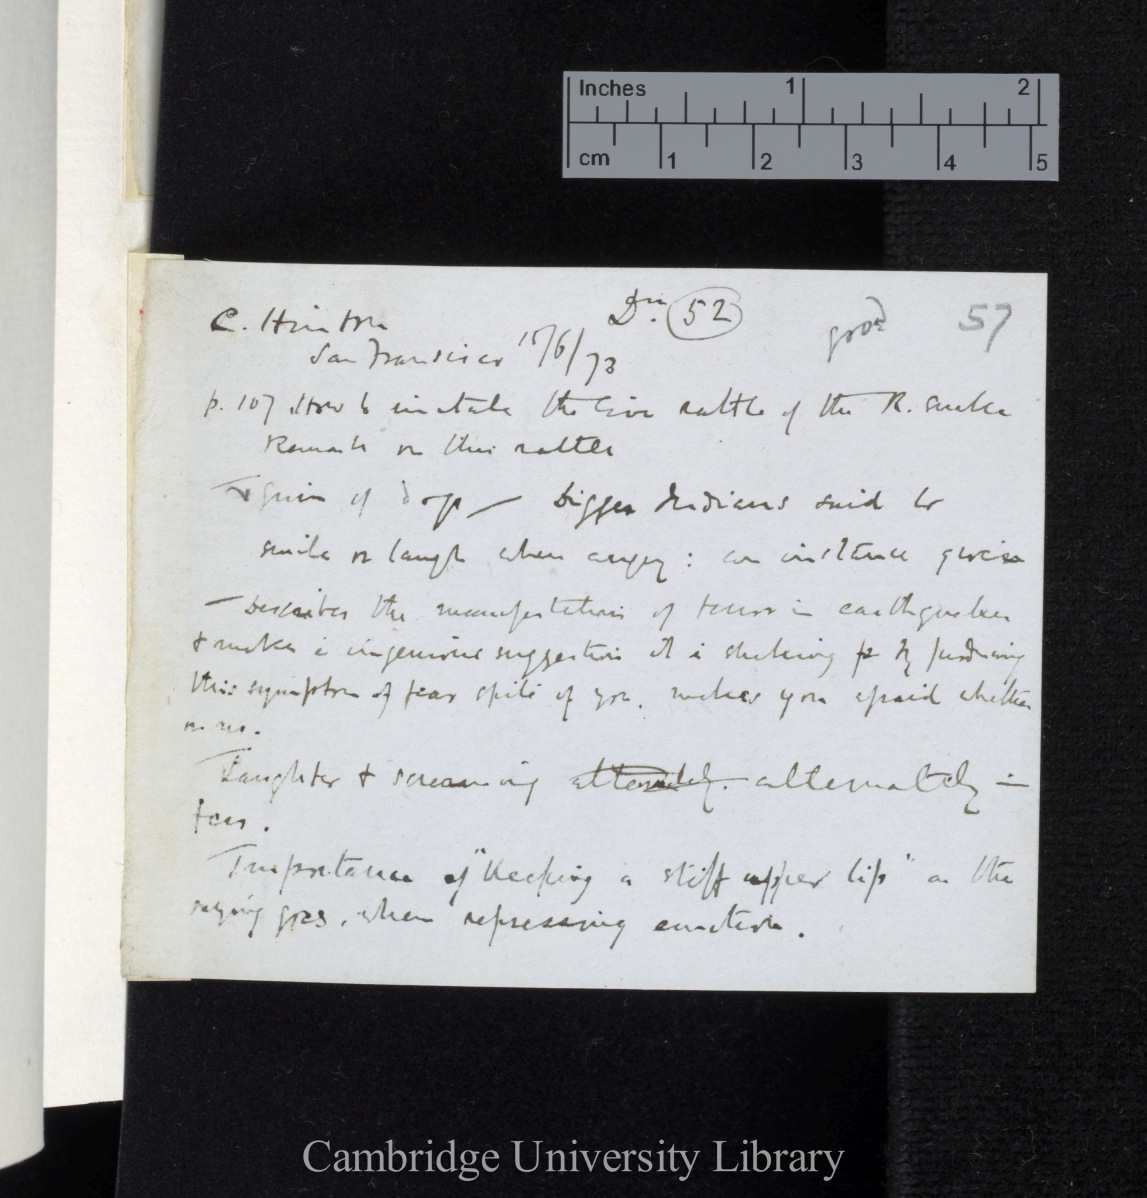 Inches 1 2
cm 1 2 3 4 5
C. Hinton Dn. 52 good 57
San Francisco 15/6/73
p. 107 How to imitate the live rattle of the R. snake
Remark on this rattle
grin of dogs — Digger Indians said to
smile or laugh when angry: an instance given
— Describes the manifestations of terror in earthquakes
& makes ingenious suggestion it is shaking by producing
this symptom of fear spite of you, makes you afraid whether
or no.
Laughter & screaming alternately in
fear.
Importance of "keeping a stiff upper lip" as the
saying goes, when repressing emotion.
Cambridge University Library